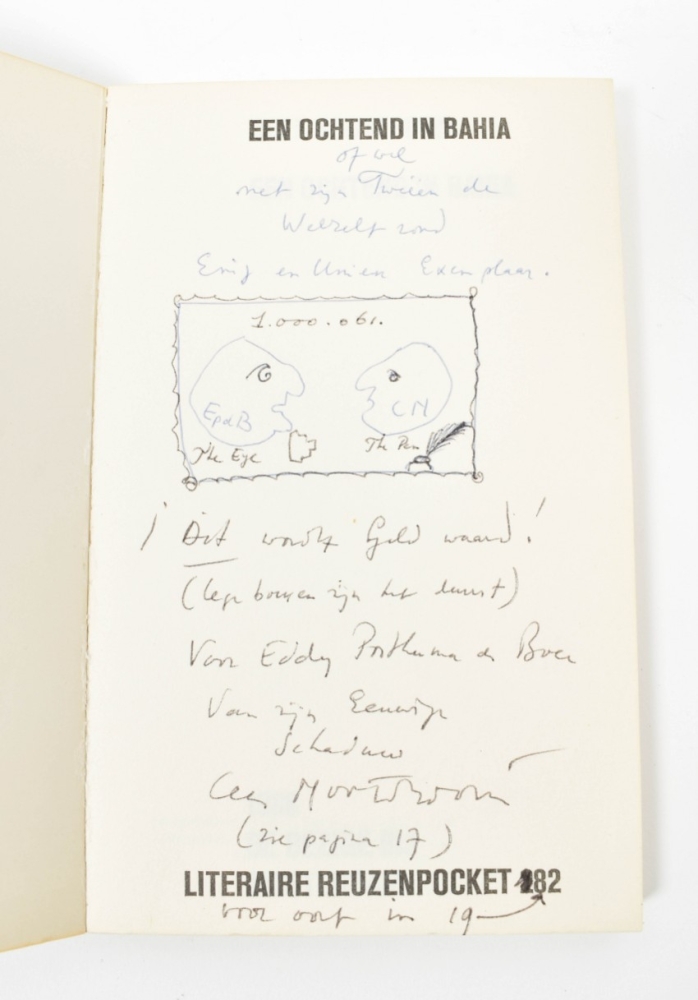 EEN OCHTEND IN BAHIA
of wel
met zijn Tweeen de
Wereld rond
Enig en Uniek Exemplaar.
1.000.061.
EpdB
CN
The Eye
The Pen
¡ Dit wordt Geld waard!
(lege zijn het duurst)
Voor Eddy Posthuma de Boer
Van zijn Eeuwige
Schaduw
Cees Nooteboom
(zie pagina 17)
LITERAIRE REUZENPOCKET 182
voor ooit in 19